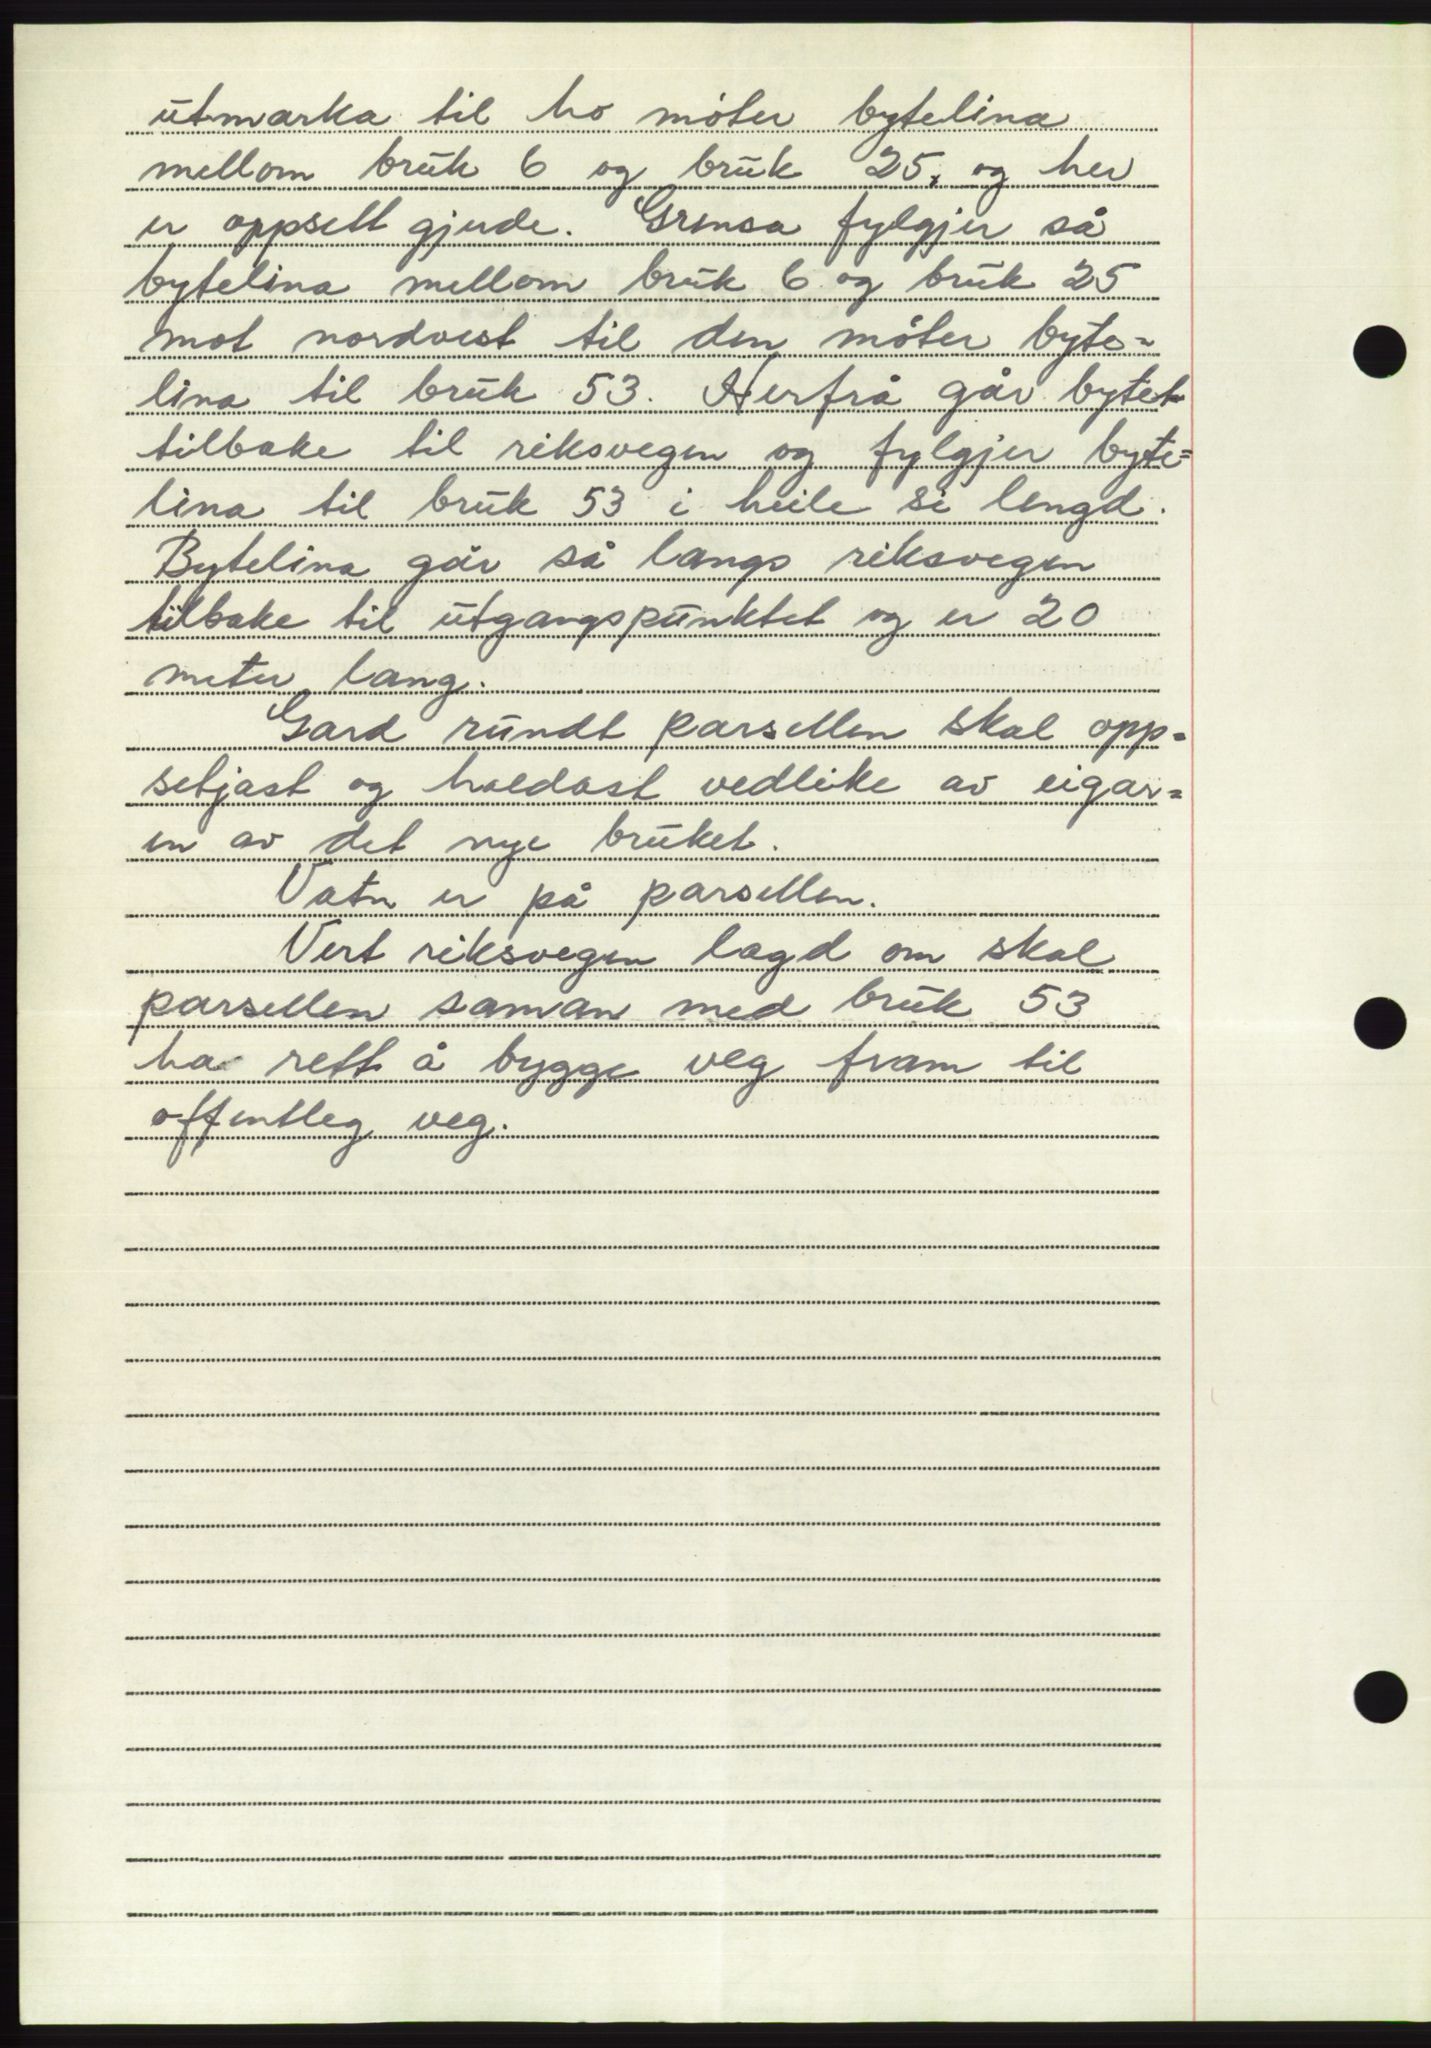 utmarka til ho møter bytelina
mellom bruk 6 og bruk 25, og her
er oppsett gjerde. Grensa fylgjer så
bytelina mellom bruk 6 og bruk 25
mot nordvest til den møter byte=
lina til bruk 53. Herfrå går bytet
tilbake til riksvegen og fylgjer byte=
lina til bruk 53 i heile si lengd.
Bytelina går så langs riksvegen
tilbake til utgangspunktet og er 20
meter lang.
Gard rundt parsellen skal opp=
setjast og haldast vedlike av eigar=
en av det nye bruket.
Vatn er på parsellen.
Vert riksvegen lagd om skal
parsellen saman med bruk 53
ha rett å bygge veg fram til
offentleg veg.